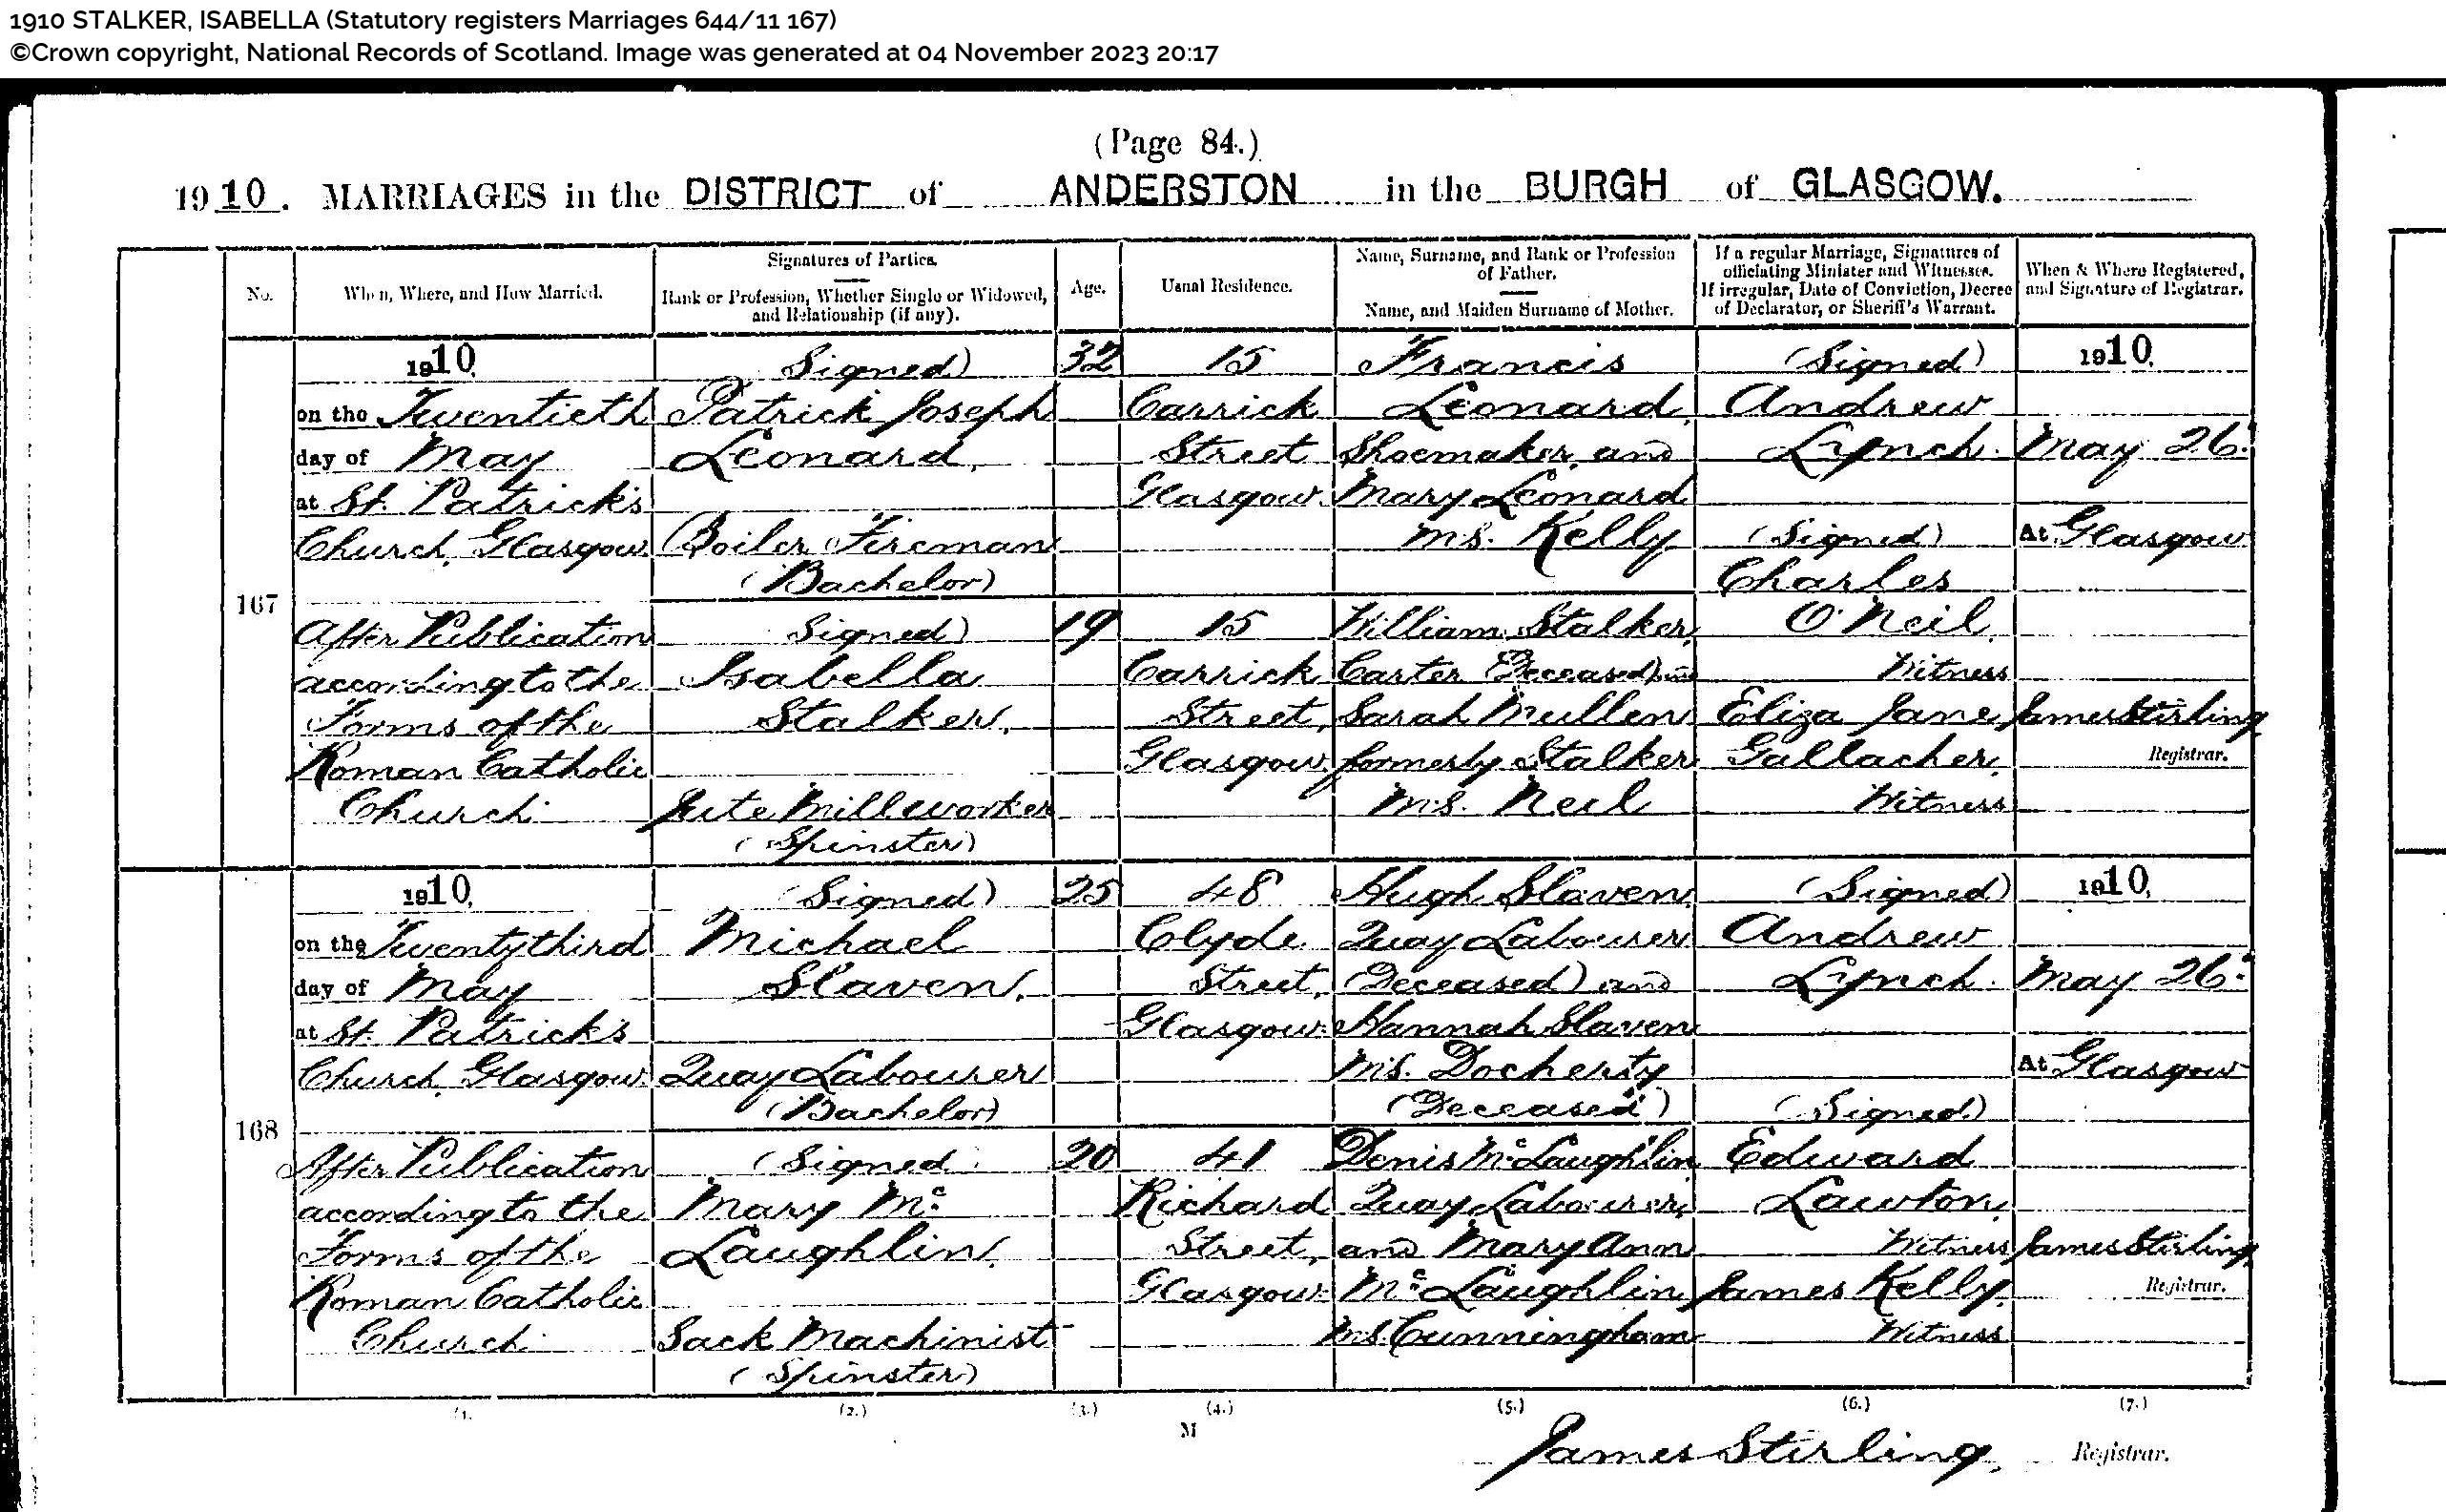 1910 STALKER, ISABELLA (Statutory registers Marriages 644/11 167)
©Crown copyright, National Records of Scotland. Image was generated at 04 November 2023 20:17
(Page 84.)
1910. MARRIAGES in the DISTRICT of ANDERSTON in the BURGH of GLASGOW.
No.
When, Where, and How Married.
Signatures of Parties.
Rank or Profession, Whether Single or Widowed,
and Relationship (if any).
Age.
Usual Residence.
Name, Surname, and Rank or Profession
of Father.
Name, and Maiden Surname of Mother.
If a regular Marriage, Signatures of
officiating Minister and Witnesses.
If irregular, Date of Conviction, Decree
of Declarator, or Sheriff's Warrant.
When & Where Registered,
and Signature of Registrar.
167
1910.
on the Twentieth
day of May
at St. Patrick's
Church, Glasgow
After Publication
according to the
Forms of the
Roman Catholic
Church
Signed)
Patrick Joseph
Leonard,
Boiler Fireman
(Bachelor)
Signed)
Isabella
Stalker,
Jute Millworker
(Spinster)
32
19
15
Carrick
Street
Glasgow.
15
Carrick
Street,
Glasgow.
Francis
Leonard,
Shoemaker, and
Mary Leonard
m.s. Kelly
William Stalker,
Carter (Deceased) and
Sarah Mullen
formerly Stalker
M.S. Neil
(Signed)
Andrew
Lynch.
(Signed)
Charles
O'Neil,
Witness
Eliza Jane
Gallacher,
Witness
1910.
May 26.
At Glasgow
James Stirling
Registrar.
168
1910.
on the Twentythird
day of May
at St. Patrick's
Church, Glasgow.
After Publication
according to the
Forms of the
Roman Catholic
Church
(Signed)
Michael
Slaven,
Quay Labourer
(Bachelor)
(Signed
Mary Mc
Laughlin,
Sack Machinist
(Spinster)
25
20
48
Clyde
Street,
Glasgow.
41
Richard
Street,
Glasgow.
Hugh Slaven,
Quay Labourer
(Deceased) and
Hannah Slaven
M.S. Docherty
(Deceased)
Denis McLaughlin,
Quay Labourer,
and Mary Ann
McLaughlin
M.S. Cunningham
(Signed)
Andrew
Lynch.
(Signed)
Edward
Lawton,
Witness
James Kelly,
Witness
1910.
May 26.
At Glasgow
James Stirling,
Registrar.
(1.
(2.)
(3.)
(4.)
(5.)
(6.)
(7.)
M
James Stirling, Registrar.